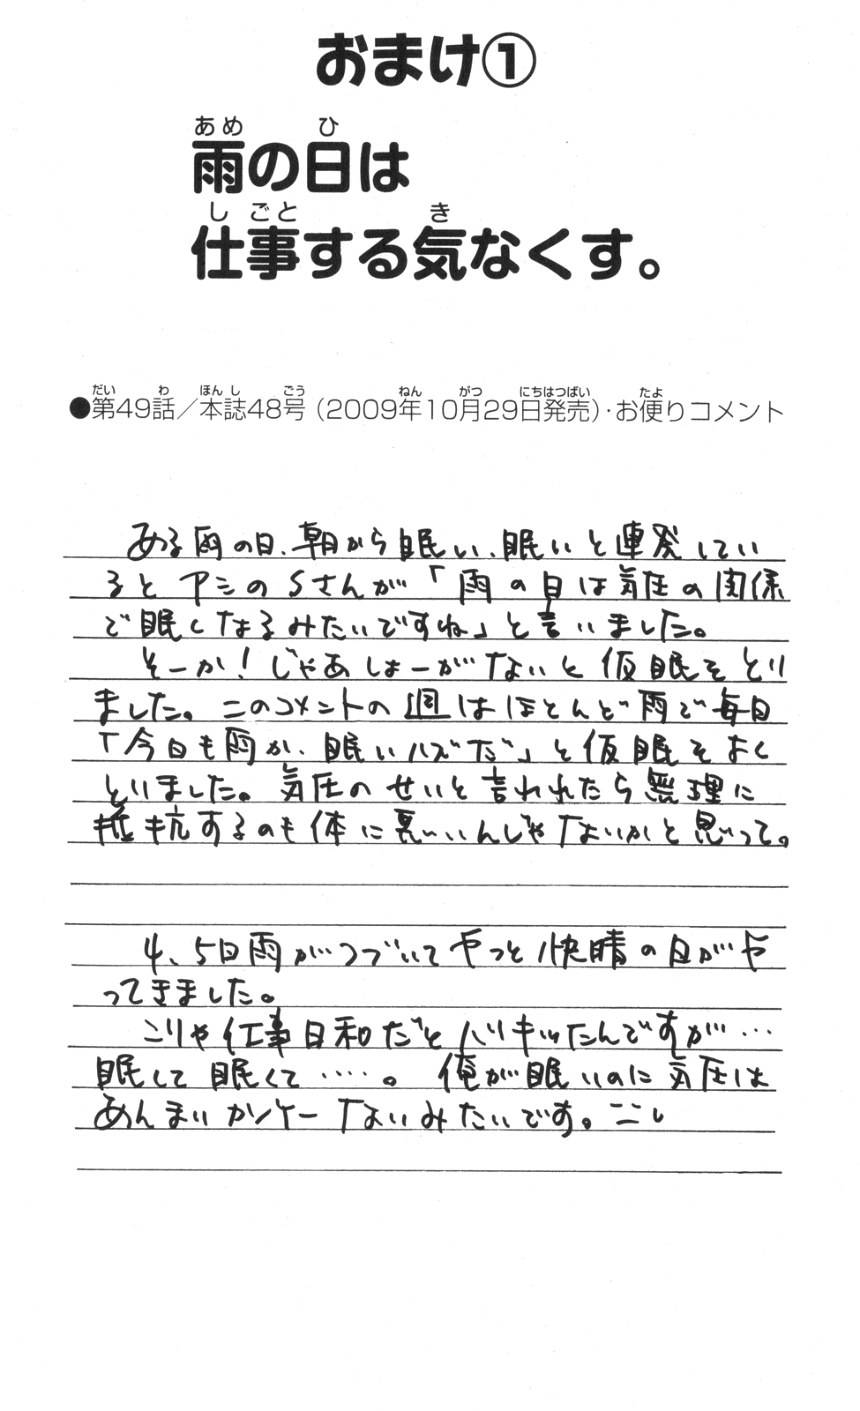 おまけ①
あめ ひ
雨の日は
しごと き
仕事する気なくす。
だい わ ほんし ごう ねん がつ にちはつばい たよ
●第49話／本誌48号(2009年10月29日発売)・お便りコメント
ある雨の日、朝から眠い、眠いと連発してい
るとアシのSさんが「雨の日は気圧の関係
で眠くなるみたいですね」と言いました。
そーか!じゃあしょーがないと仮眠をとり
ました。このコメントの週はほとんど雨で毎日
「今日も雨か、眠いハズだ」と仮眠をよく
とりました。気圧のせいと言われたら無理に
抵抗するのも体に悪いんじゃないかと思って。
4、5日雨がつづいてやっと快晴の日がや
ってきました。
こりゃ仕事日和だとハリキッたんですが…
眠くて眠くて‥‥。俺が眠いのに気圧は
あんまりカンケーないみたいです。